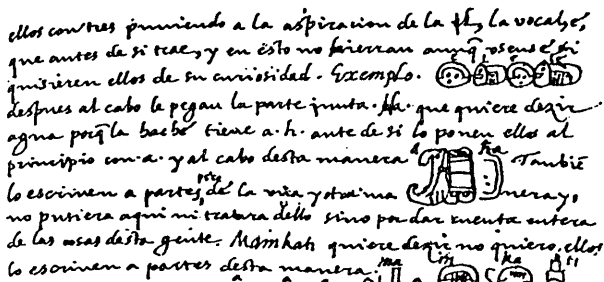 ellos con tres puniendo a la aspiracion de la h, la vocal e,
que antes de si trae, y en esto no hierran aunq̃ usense si
quisieren ellos de su curiosidad. Exemplo.
despues al cabo le pegan la parte junta. Ha. que quiere dezir
agua porq̃ la hache tiene a. h. ante de si lo ponen ellos al
principio con .a. y al cabo desta manera a ha Tambiẽ
lo escriven a partes, pero de la una y otra ma nera y,
no pusiera aqui ni tratara dello sino por dar cuenta entera
de las cosas desta gente. Mainkati quiere dezir no quiero, ellos
lo escriven a partes desta manera. ma in ka ti